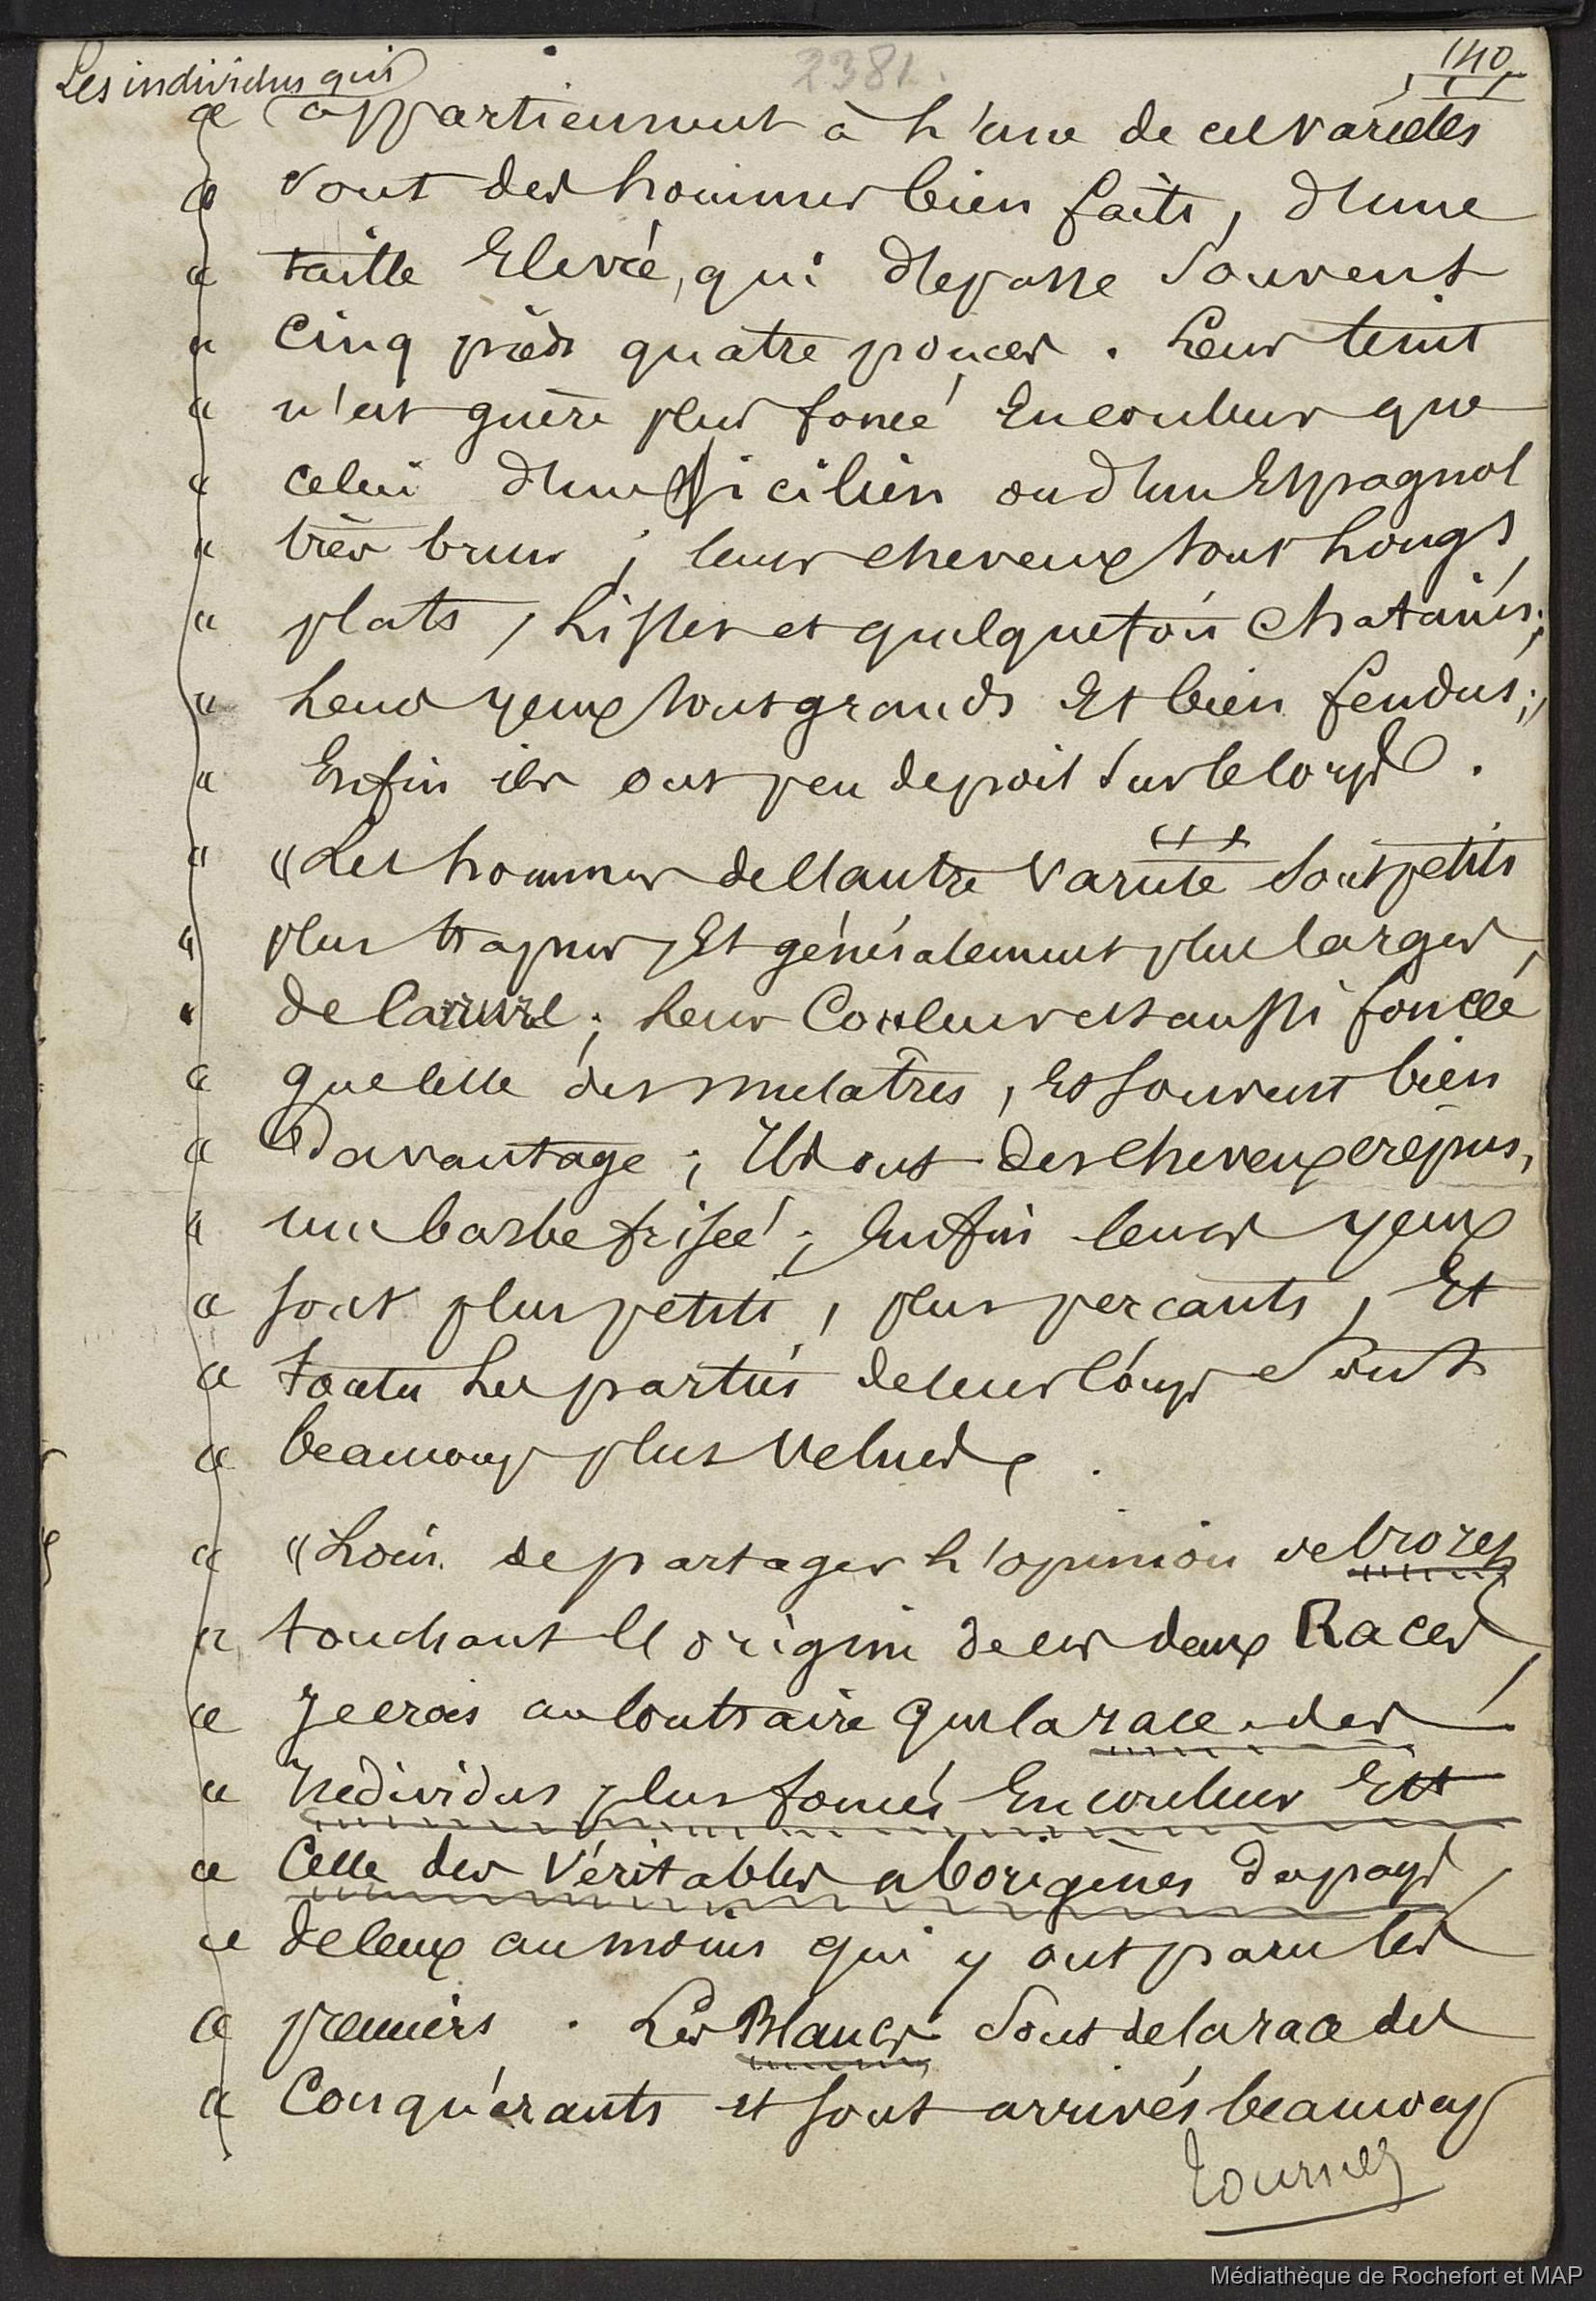 2381.
140
Les individus qui
« appartiennent à l'une de ces variétés
« sont des hommes bien faits, d'une
« taille Elevée, qui depasse Souvent
« Cinq pieds quatre pouces. Leur teint
« n'est guère plus foncé En couleur que
« celui d'un Sicilien ou d'un Espagnol
« très brun ; leurs cheveux sont Longs,
« plats, Lisses et quelquefois Chatains;
« Leurs yeux sont grands Et bien fendus;
« Enfin ils ont peu de poil Sur le Corps.
« « Les hommes de l'autre Variété Sont petits
« plus trapus, Et généralement plus larges,
« de Carrure; Leur Couleur est aussi foncée
« que celle des mulatres, Et souvent bien
« Davantage ; Ils ont des cheveux crépus,
« une barbe frisée ; Enfin leurs yeux
« sont plus petits, plus percants, Et
« toutes Les parties de leur Corps Sont
« beaucoup plus Velues.
« « Loin de partager L'opinion de Crozet
« touchant l'origine de ces deux Races,
« Je crois au Contraire que la race des
« Individus plus foncés En couleur Est
« Celle des Véritables aborigènes du pays,
« de ceux au moins qui y ont paru les
« premiers. Les Blancs Sont de la race des
« Conquérants et sont arrivés beaucoup
Tournez
Médiathèque de Rochefort et MAP